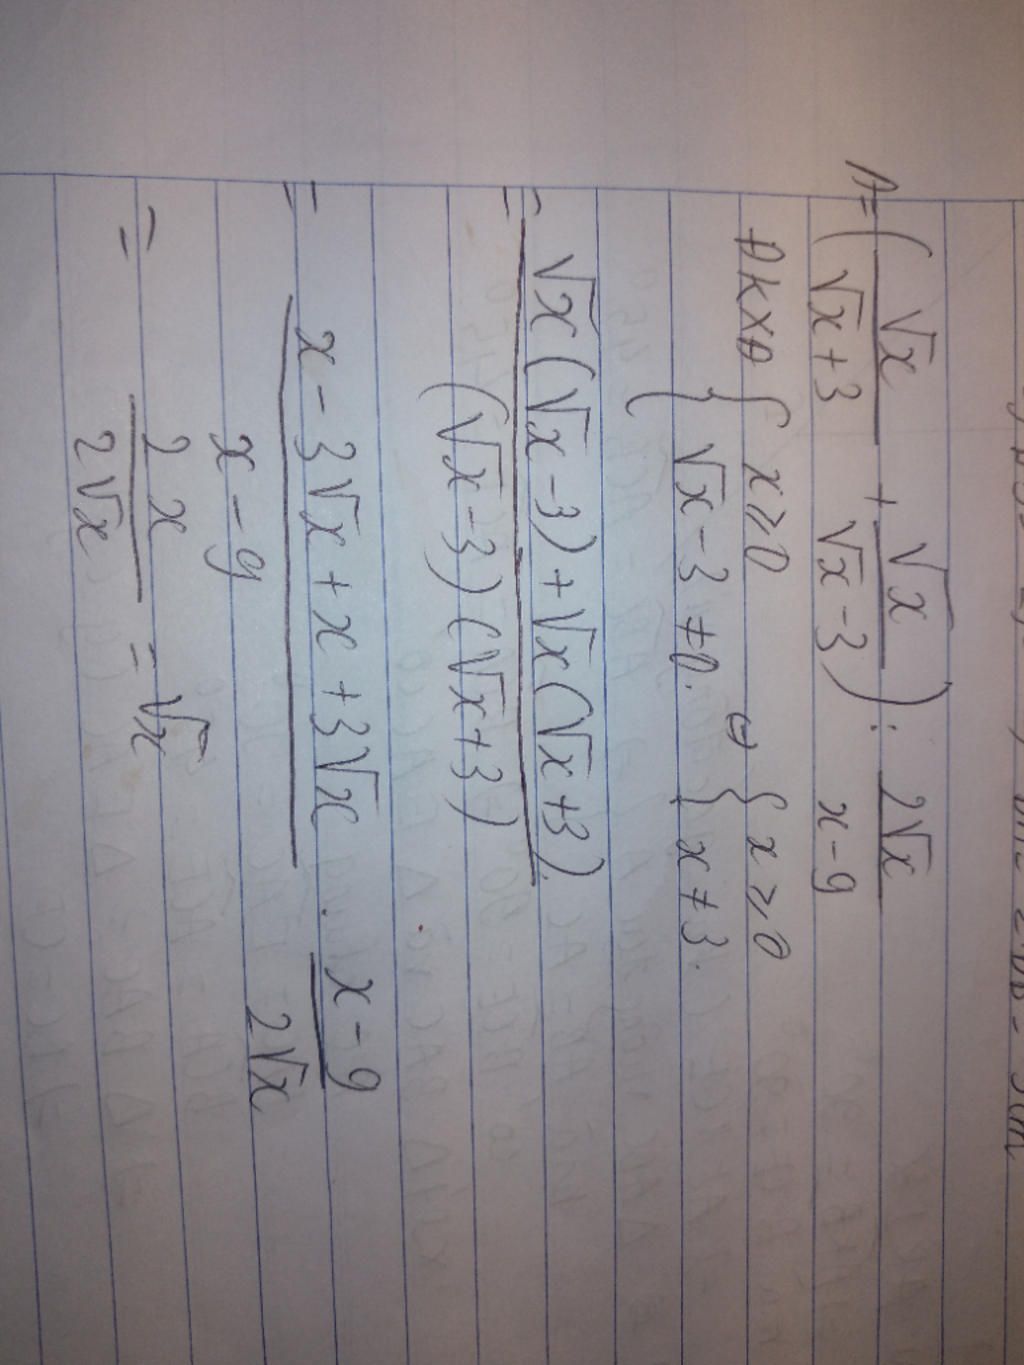 A = ( √x / √x+3 + √x / √x-3 ) : 2√x / x-9
ĐKXĐ { x ≥ 0 √x - 3 ≠ 0. ⇔ { x ≥ 0 x ≠ 3.
= √x(√x-3) + √x(√x+3). / (√x-3)(√x+3)
= x - 3√x + x + 3√x / x - 9 . x - 9 / 2√x
= 2x / 2√x = √x